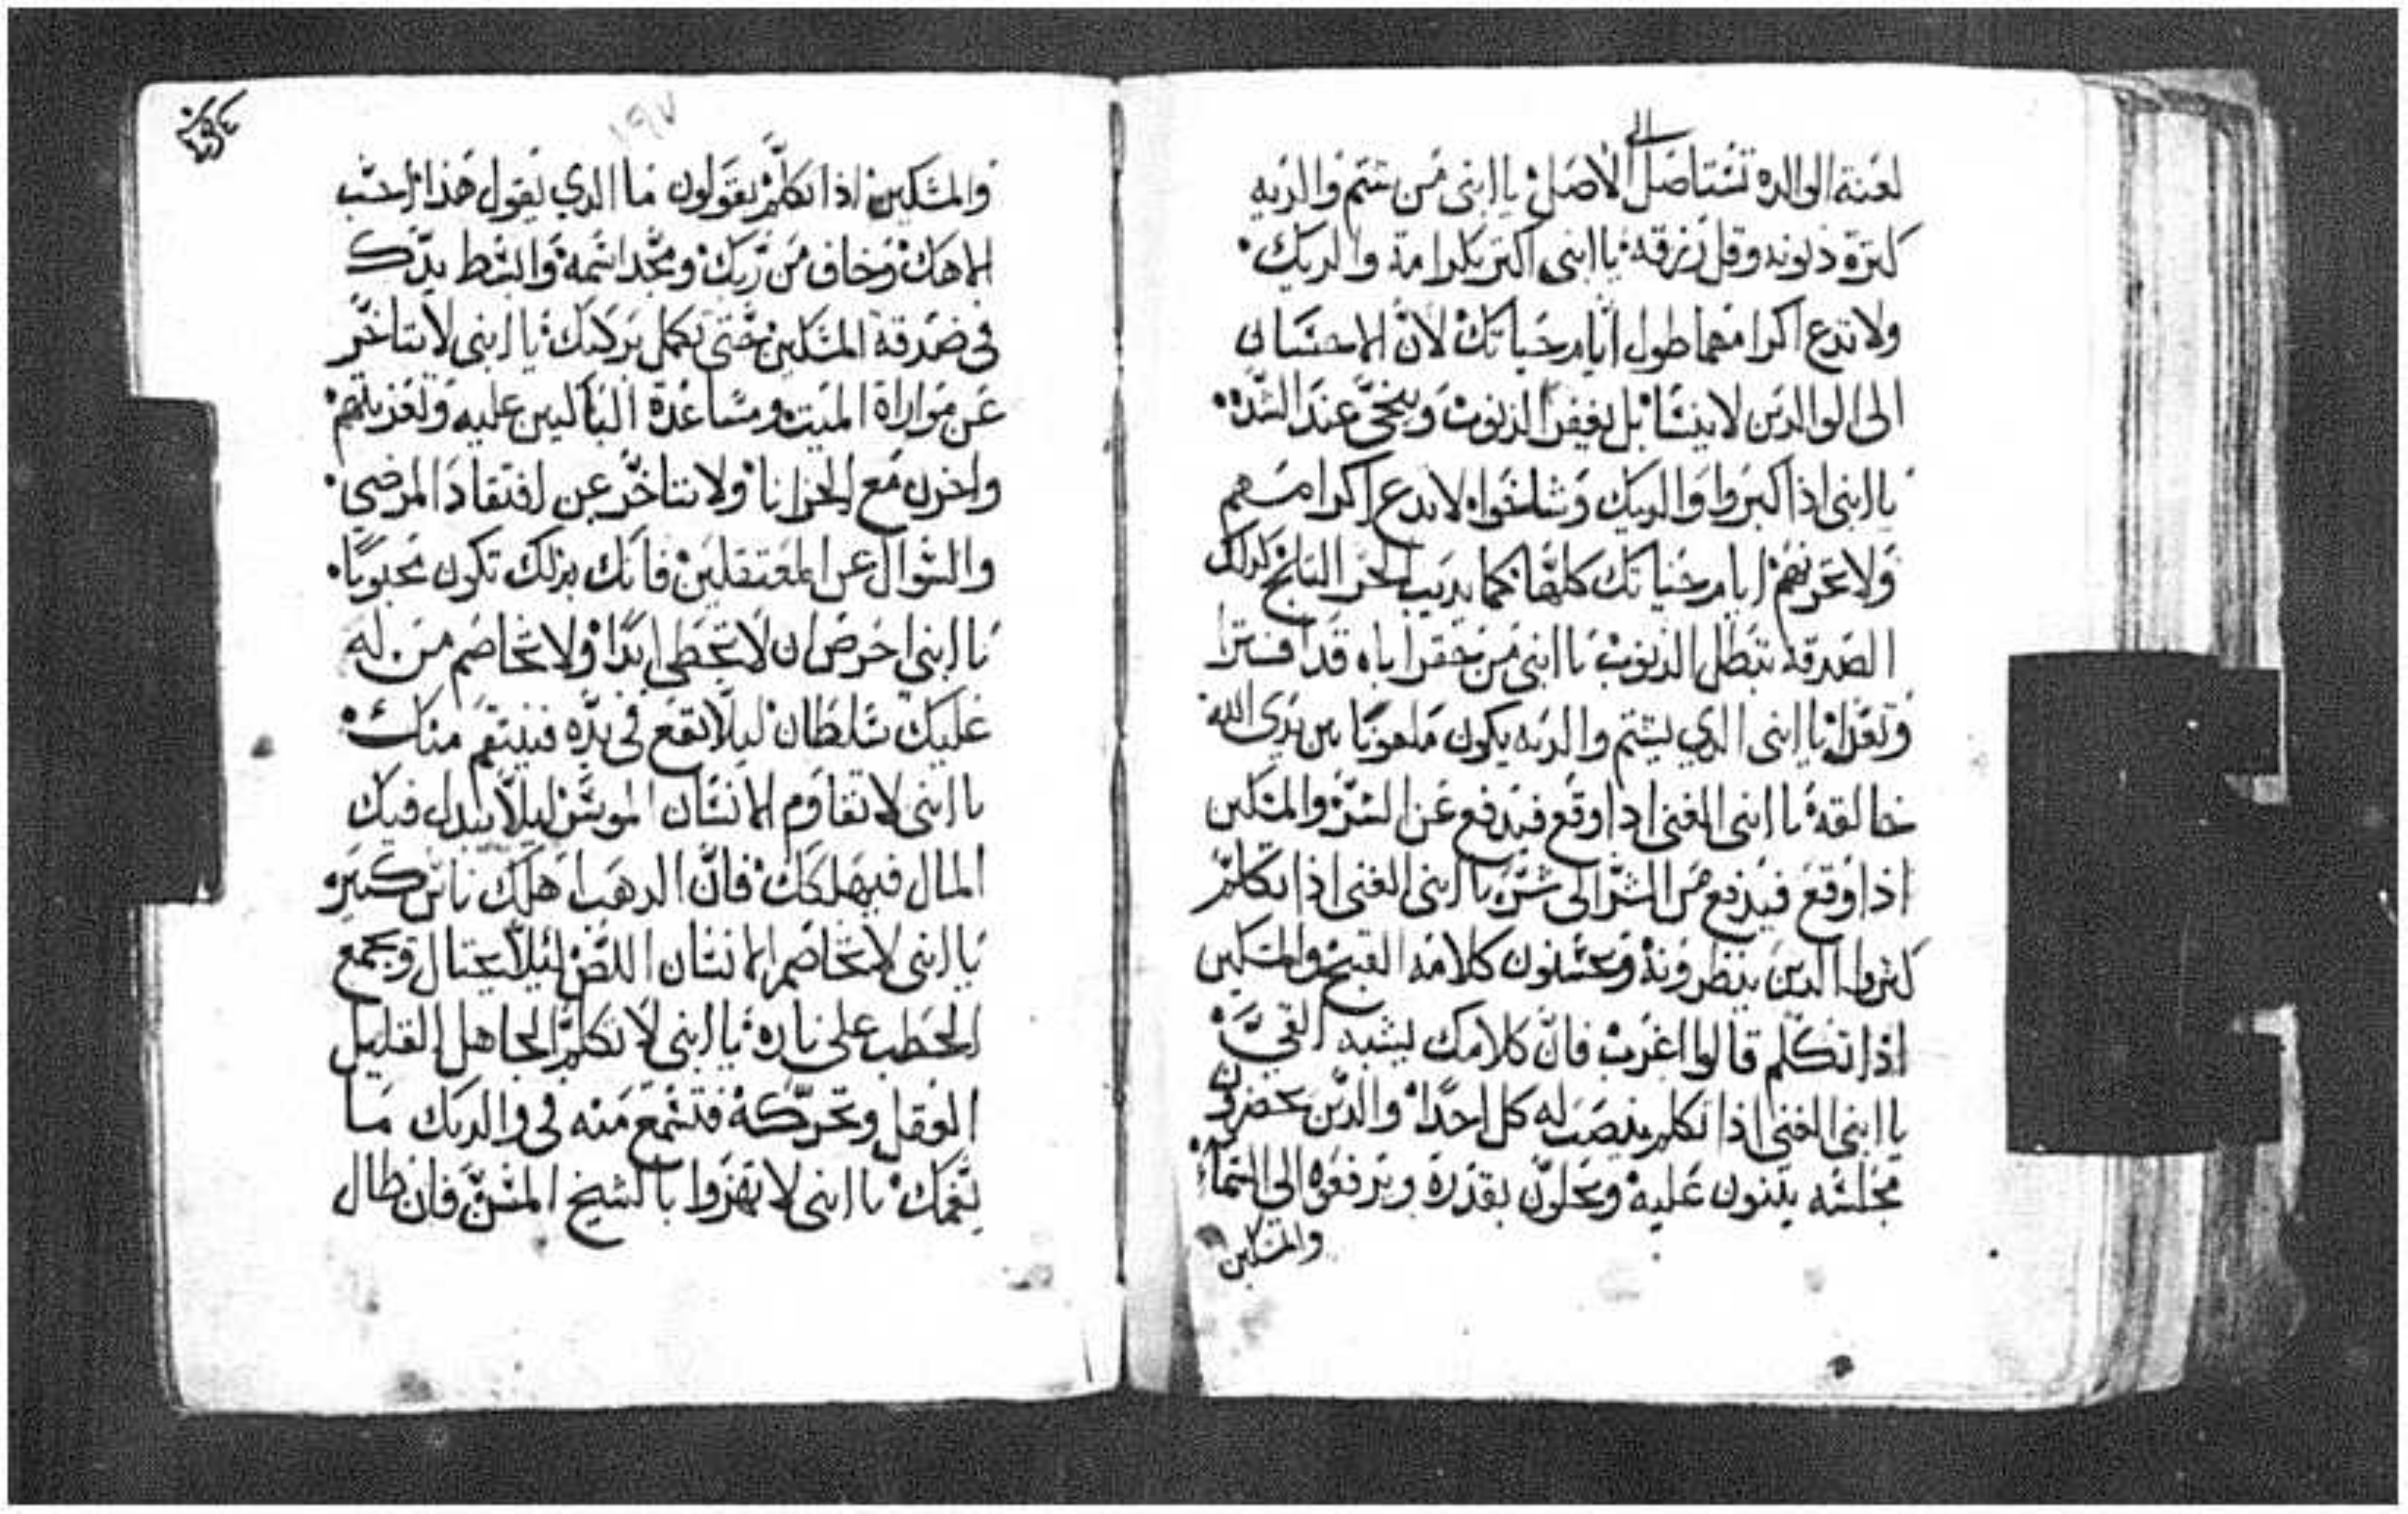 الى
لعنة الوالده تستاصل الاصل يا ابني من شتم والديه
كترة دنوبه وقل رزقه يا ابني اكتر بكرامة والديك
ولا تدع اكرامهما طول ايام حياتك لان الاحسان
الى الوالدين لا ينسا بل يغفر الذنوب وينجي عند الشده
يا ابني اذا كبروا والديك وشاخوا لا تدع اكرامهم
ولا تحزنهم ايام حياتك كلها كما يديب الحر التلج كدلك
الصدقه تبطل الذنوب يا ابني من حقر اباه قد افترا
وتعدا يا ابني الدي يشتم والديه يكون ملعونا بين يدي الله
خالقه يا ابني الغني ادا وقع فيدفع عن الشر والمسكين
اذا وقع فيدفع من الشر الى شر يا ابني الغني اذا تكلم
كتروا الدين ينظرونه ويحسنون كلامه القبيح والمسكين
اذا تكلم قالوا اغرب فان كلامك يشبه القي
يا ابني الغني اذا تكلم ينصت له كل احدا والدين يحضرون
مجلسه يتنون عليه ويجلون بقدره ويرفعوه الى السماء
والمسكين
١٩٧
والمسكين اذا تكلم يقولون ما الدي يقول هذا احبب
الاهك وخاف من ربك ومجد اسمه وابسط يدك
في صدقة المسكين حتى تكمل بركتك يا ابني لا تتاخر
عن مواراة الميت ومساعدة الباكيين عليه وتعزيتهم
واحزن مع الحزانا ولا تتاخر عن افتقاد المرضي
والسوال عن المعتقلين فانك بذلك تكون محبوبا
يا ابني احرص ان لا تخطي ابدا ولا تخاصم من له
عليك سلطان ليلا تقع في يده فينتقم منك
يا ابني لا تقاوم الانسان الموسر ليلا يبدل فيك
المال فيهلكك فان الدهب اهلك ناس كتيره
يا ابني لا تخاصم الانسان اللص ليلا يحتال ويجمع
الحطب على ناره يا ابني لا تكلم الجاهل القليل
العقل وتحركه فتسمع منه في والديك ما
يغمك يا ابني لا تهزوا بالشيخ المسن فان طال